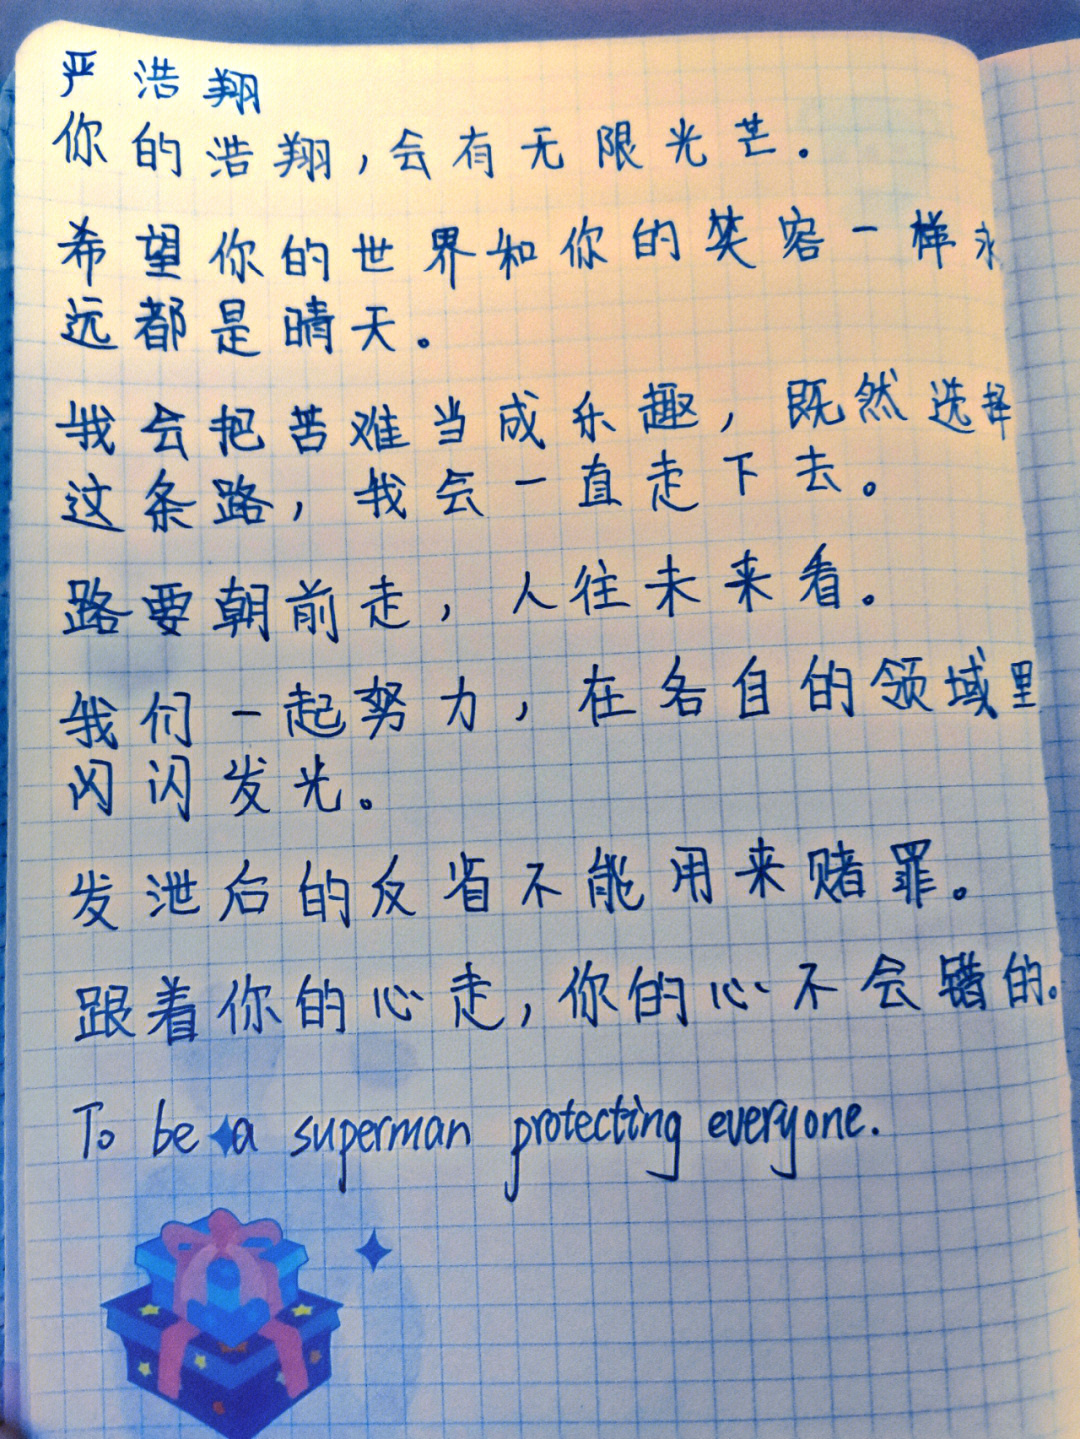 严浩翔
你的浩翔,会有无限光芒.
希望你的世界和你的笑容一样永
远都是晴天。
我会把苦难当成乐趣,既然选择
这条路,我会一直走下去。
路要朝前走,人往未来看。
我们一起努力,在各自的领域里
闪闪发光。
发泄后的反省不能用来赌罪。
跟着你的心走,你的心不会错的。
To be a superman protecting everyone.